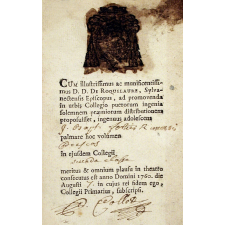 CUM Illustrissimus ac munificentissi-
mus D. D. DE ROQUELAURE, Sylva-
nectensis Episcopus, ad promovenda
in urbis Collegio puerorum ingenia
solemnem præmiorum distributionem
proposuisset, ingenuus adolescens
palmare hoc volumen
In ejusdem Collegii
meritus & omnium plausu in theatro
consecutus est anno Domini 1760. die
Augusti 7. in cujus rei fidem ego
Collegii Primarius, subscripsi.